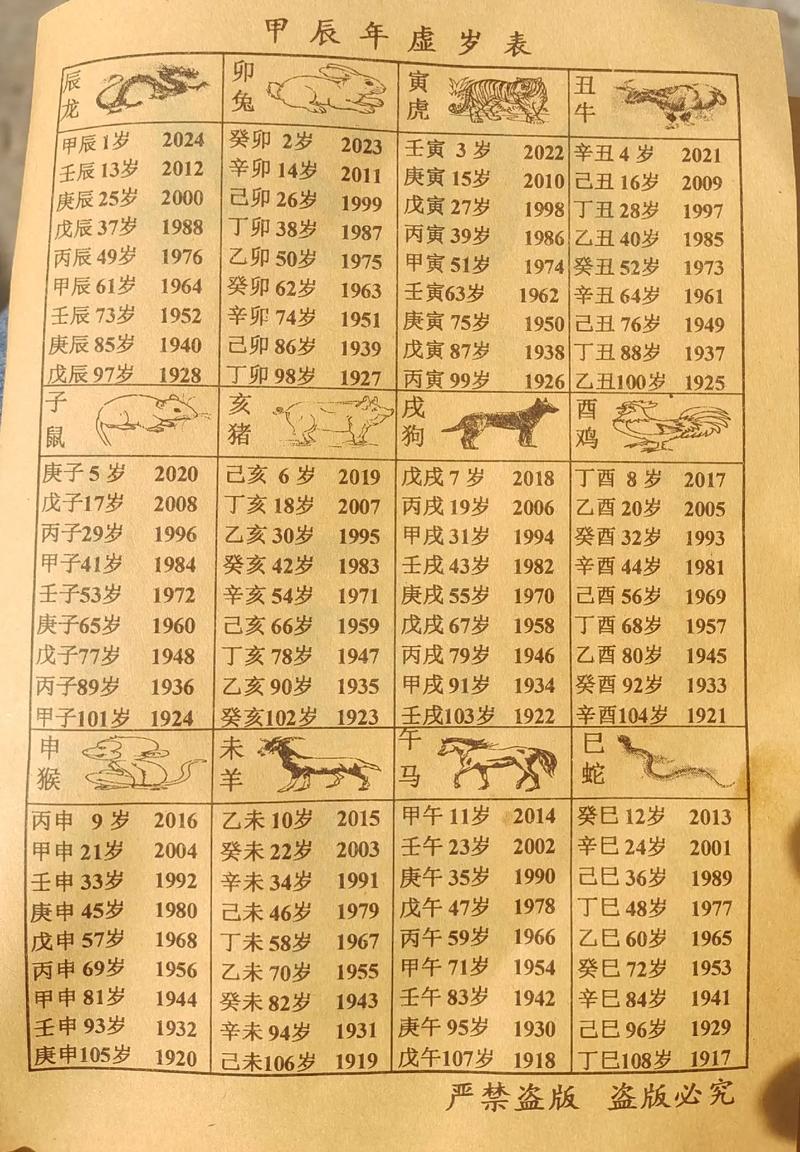 甲辰年虚岁表
辰龙
甲辰 1岁 2024
壬辰 13岁 2012
庚辰 25岁 2000
戊辰 37岁 1988
丙辰 49岁 1976
甲辰 61岁 1964
壬辰 73岁 1952
庚辰 85岁 1940
戊辰 97岁 1928
卯兔
癸卯 2岁 2023
辛卯 14岁 2011
己卯 26岁 1999
丁卯 38岁 1987
乙卯 50岁 1975
癸卯 62岁 1963
辛卯 74岁 1951
己卯 86岁 1939
丁卯 98岁 1927
寅虎
壬寅 3岁 2022
庚寅 15岁 2010
戊寅 27岁 1998
丙寅 39岁 1986
甲寅 51岁 1974
壬寅 63岁 1962
庚寅 75岁 1950
戊寅 87岁 1938
丙寅 99岁 1926
丑牛
辛丑 4岁 2021
己丑 16岁 2009
丁丑 28岁 1997
乙丑 40岁 1985
癸丑 52岁 1973
辛丑 64岁 1961
己丑 76岁 1949
丁丑 88岁 1937
乙丑 100岁 1925
子鼠
庚子 5岁 2020
戊子 17岁 2008
丙子 29岁 1996
甲子 41岁 1984
壬子 53岁 1972
庚子 65岁 1960
戊子 77岁 1948
丙子 89岁 1936
甲子 101岁 1924
亥猪
己亥 6岁 2019
丁亥 18岁 2007
乙亥 30岁 1995
癸亥 42岁 1983
辛亥 54岁 1971
己亥 66岁 1959
丁亥 78岁 1947
乙亥 90岁 1935
癸亥 102岁 1923
戌狗
戊戌 7岁 2018
丙戌 19岁 2006
甲戌 31岁 1994
壬戌 43岁 1982
庚戌 55岁 1970
戊戌 67岁 1958
丙戌 79岁 1946
甲戌 91岁 1934
壬戌 103岁 1922
酉鸡
丁酉 8岁 2017
乙酉 20岁 2005
癸酉 32岁 1993
辛酉 44岁 1981
己酉 56岁 1969
丁酉 68岁 1957
乙酉 80岁 1945
癸酉 92岁 1933
辛酉 104岁 1921
申猴
丙申 9岁 2016
甲申 21岁 2004
壬申 33岁 1992
庚申 45岁 1980
戊申 57岁 1968
丙申 69岁 1956
甲申 81岁 1944
壬申 93岁 1932
庚申 105岁 1920
未羊
乙未 10岁 2015
癸未 22岁 2003
辛未 34岁 1991
己未 46岁 1979
丁未 58岁 1967
乙未 70岁 1955
癸未 82岁 1943
辛未 94岁 1931
己未 106岁 1919
午马
甲午 11岁 2014
壬午 23岁 2002
庚午 35岁 1990
戊午 47岁 1978
丙午 59岁 1966
甲午 71岁 1954
壬午 83岁 1942
庚午 95岁 1930
戊午 107岁 1918
巳蛇
癸巳 12岁 2013
辛巳 24岁 2001
己巳 36岁 1989
丁巳 48岁 1977
乙巳 60岁 1965
癸巳 72岁 1953
辛巳 84岁 1941
己巳 96岁 1929
丁巳 108岁 1917
严禁盗版 盗版必究